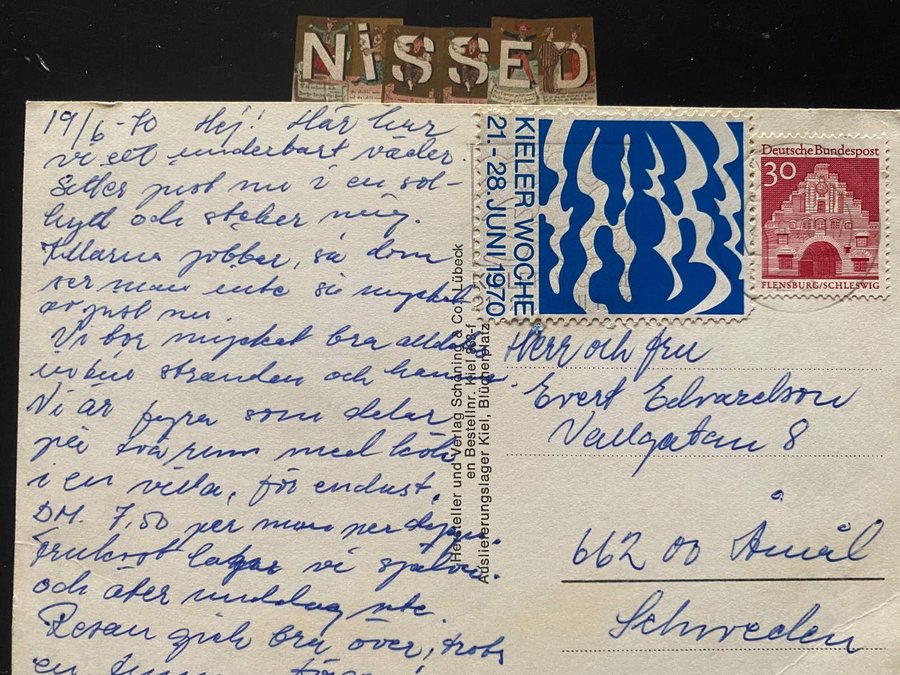 NISSED
19/6-70 Hej! Här har
vi ett underbart väder.
Sitter just nu i en sol-
hytt och steker mig.
Killarna jobbar, så dom
ser man inte så mycket
av just nu.
Vi bor mycket bra alldeles
invid stranden och hamnen.
Vi är fyra som delar
på två rum med kök
i en villa, för endast
DM. 7,50 per man per dygn.
Frukost lagar vi själva
och äter middag ute.
Resan gick bra över, trots
en
KIELER WOCHE
21.-28. JUNI 1970
Deutsche Bundespost
30
FLENSBURG/SCHLESWIG
Hersteller und Verlag Schöning & Co., Lübeck
en Bestellnr. Kiel
Auslieferungslager Kiel, Blücherplatz
Herr och fru
Evert Edvardson
Vallgatan 8
662 00 Åmål
Schweden